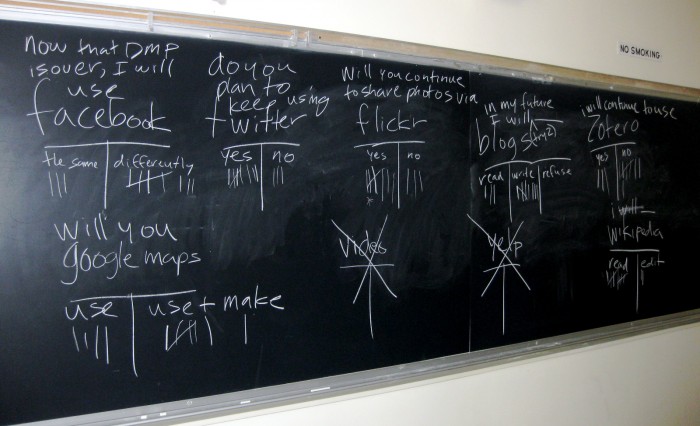 NO SMOKING
now that DMP
is over, I will
use
facebook
the same differently
do you
plan to
keep using
twitter
yes no
Will you continue
to share photos via
flickr
yes no
*
in my future
I will
blogs (try 2)
read write refuse
i will continue to use
Zotero
yes no
will you
google maps
use use + make
video
yelp
i will
Wikipedia
read edit